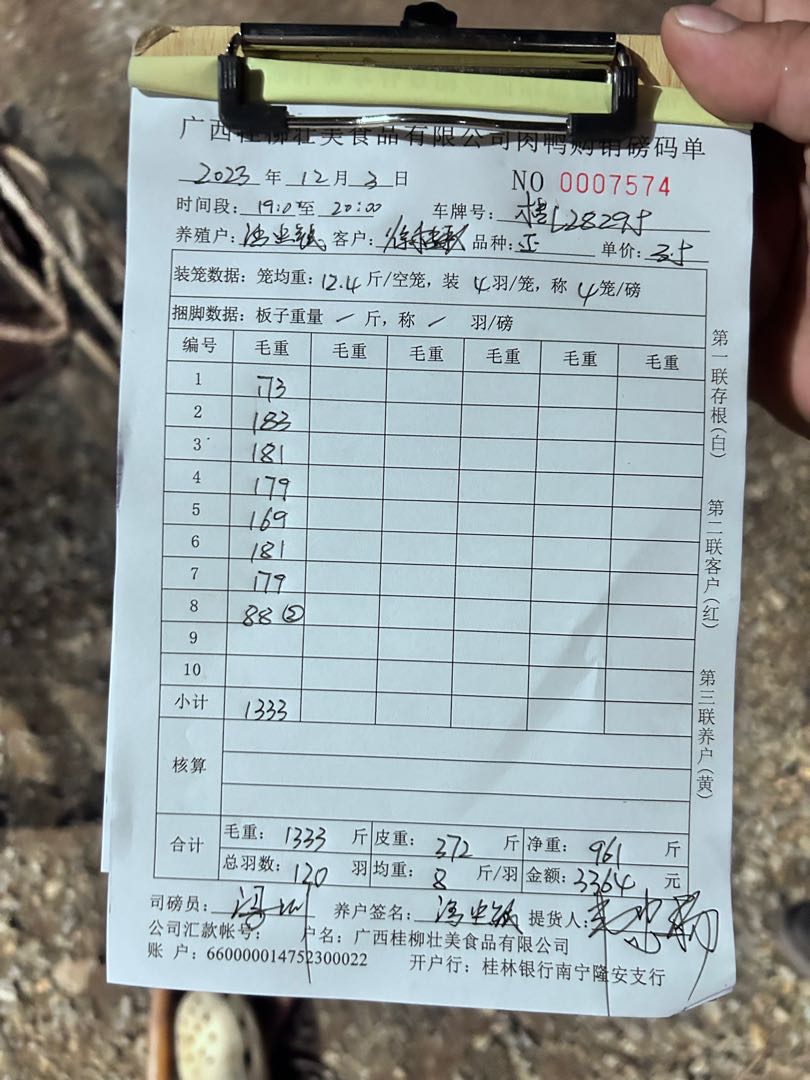 广西桂柳壮美食品有限公司肉鸭购销磅码单
2023 年 12 月 3 日 NO 0007574
时间段: 19:0 至 20:00 车牌号: 桂L2829
养殖户: 客户: 品种: 单价: 3.5
装笼数据: 笼均重: 12.4 斤/空笼, 装 4 羽/笼, 称 4 笼/磅
捆脚数据: 板子重量 / 斤, 称 / 羽/磅
编号 毛重 毛重 毛重 毛重 毛重 毛重
1 173
2 183
3 181
4 179
5 169
6 181
7 179
8 88 ②
9
10
小计 1333
核算
合计 毛重: 1333 斤 皮重: 372 斤 净重: 961 斤
总羽数: 120 羽 均重: 8 斤/羽 金额: 3364 元
司磅员: 养户签名: 提货人:
公司汇款帐号: 户名: 广西桂柳壮美食品有限公司
账 户: 660000014752300022 开户行: 桂林银行南宁隆安支行
第一联存根(白)
第二联客户(红)
第三联养户(黄)